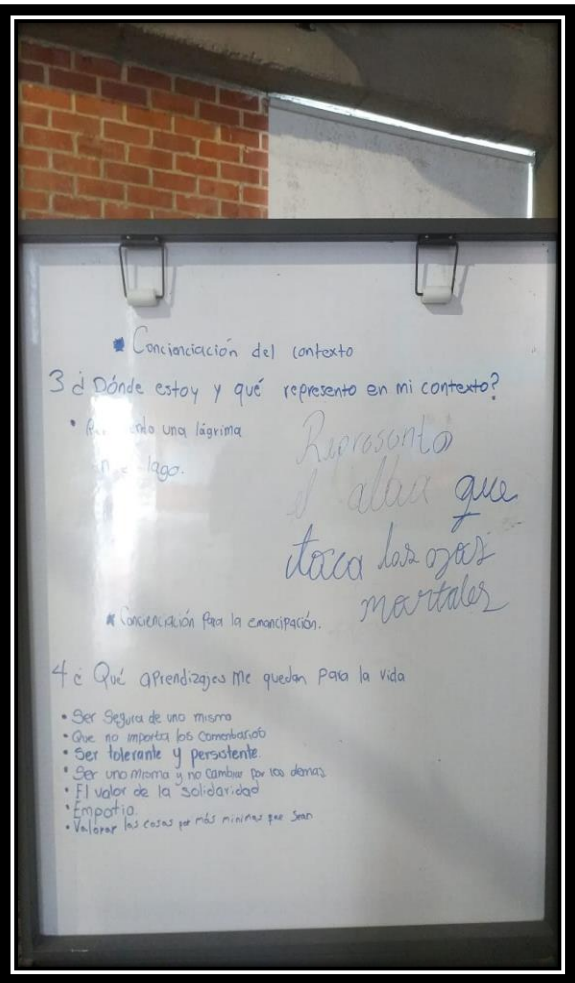 * Concienciación del contexto
3 ¿ Dónde estoy y qué represento en mi contexto?
• una lágrima
lago.
Represento
el que
toca los ojos
mortales
* Concienciación Para la emancipación.
4 ¿ Qué aprendizajes me quedan para la vida
• Ser Segura de uno mismo
• Que no importa los comentarios
• Ser tolerante y persistente.
• Ser uno misma y no cambiar por los demas
• El valor de la solidaridad
• Empatia.
• Valorar las cosas por más minimas que sean